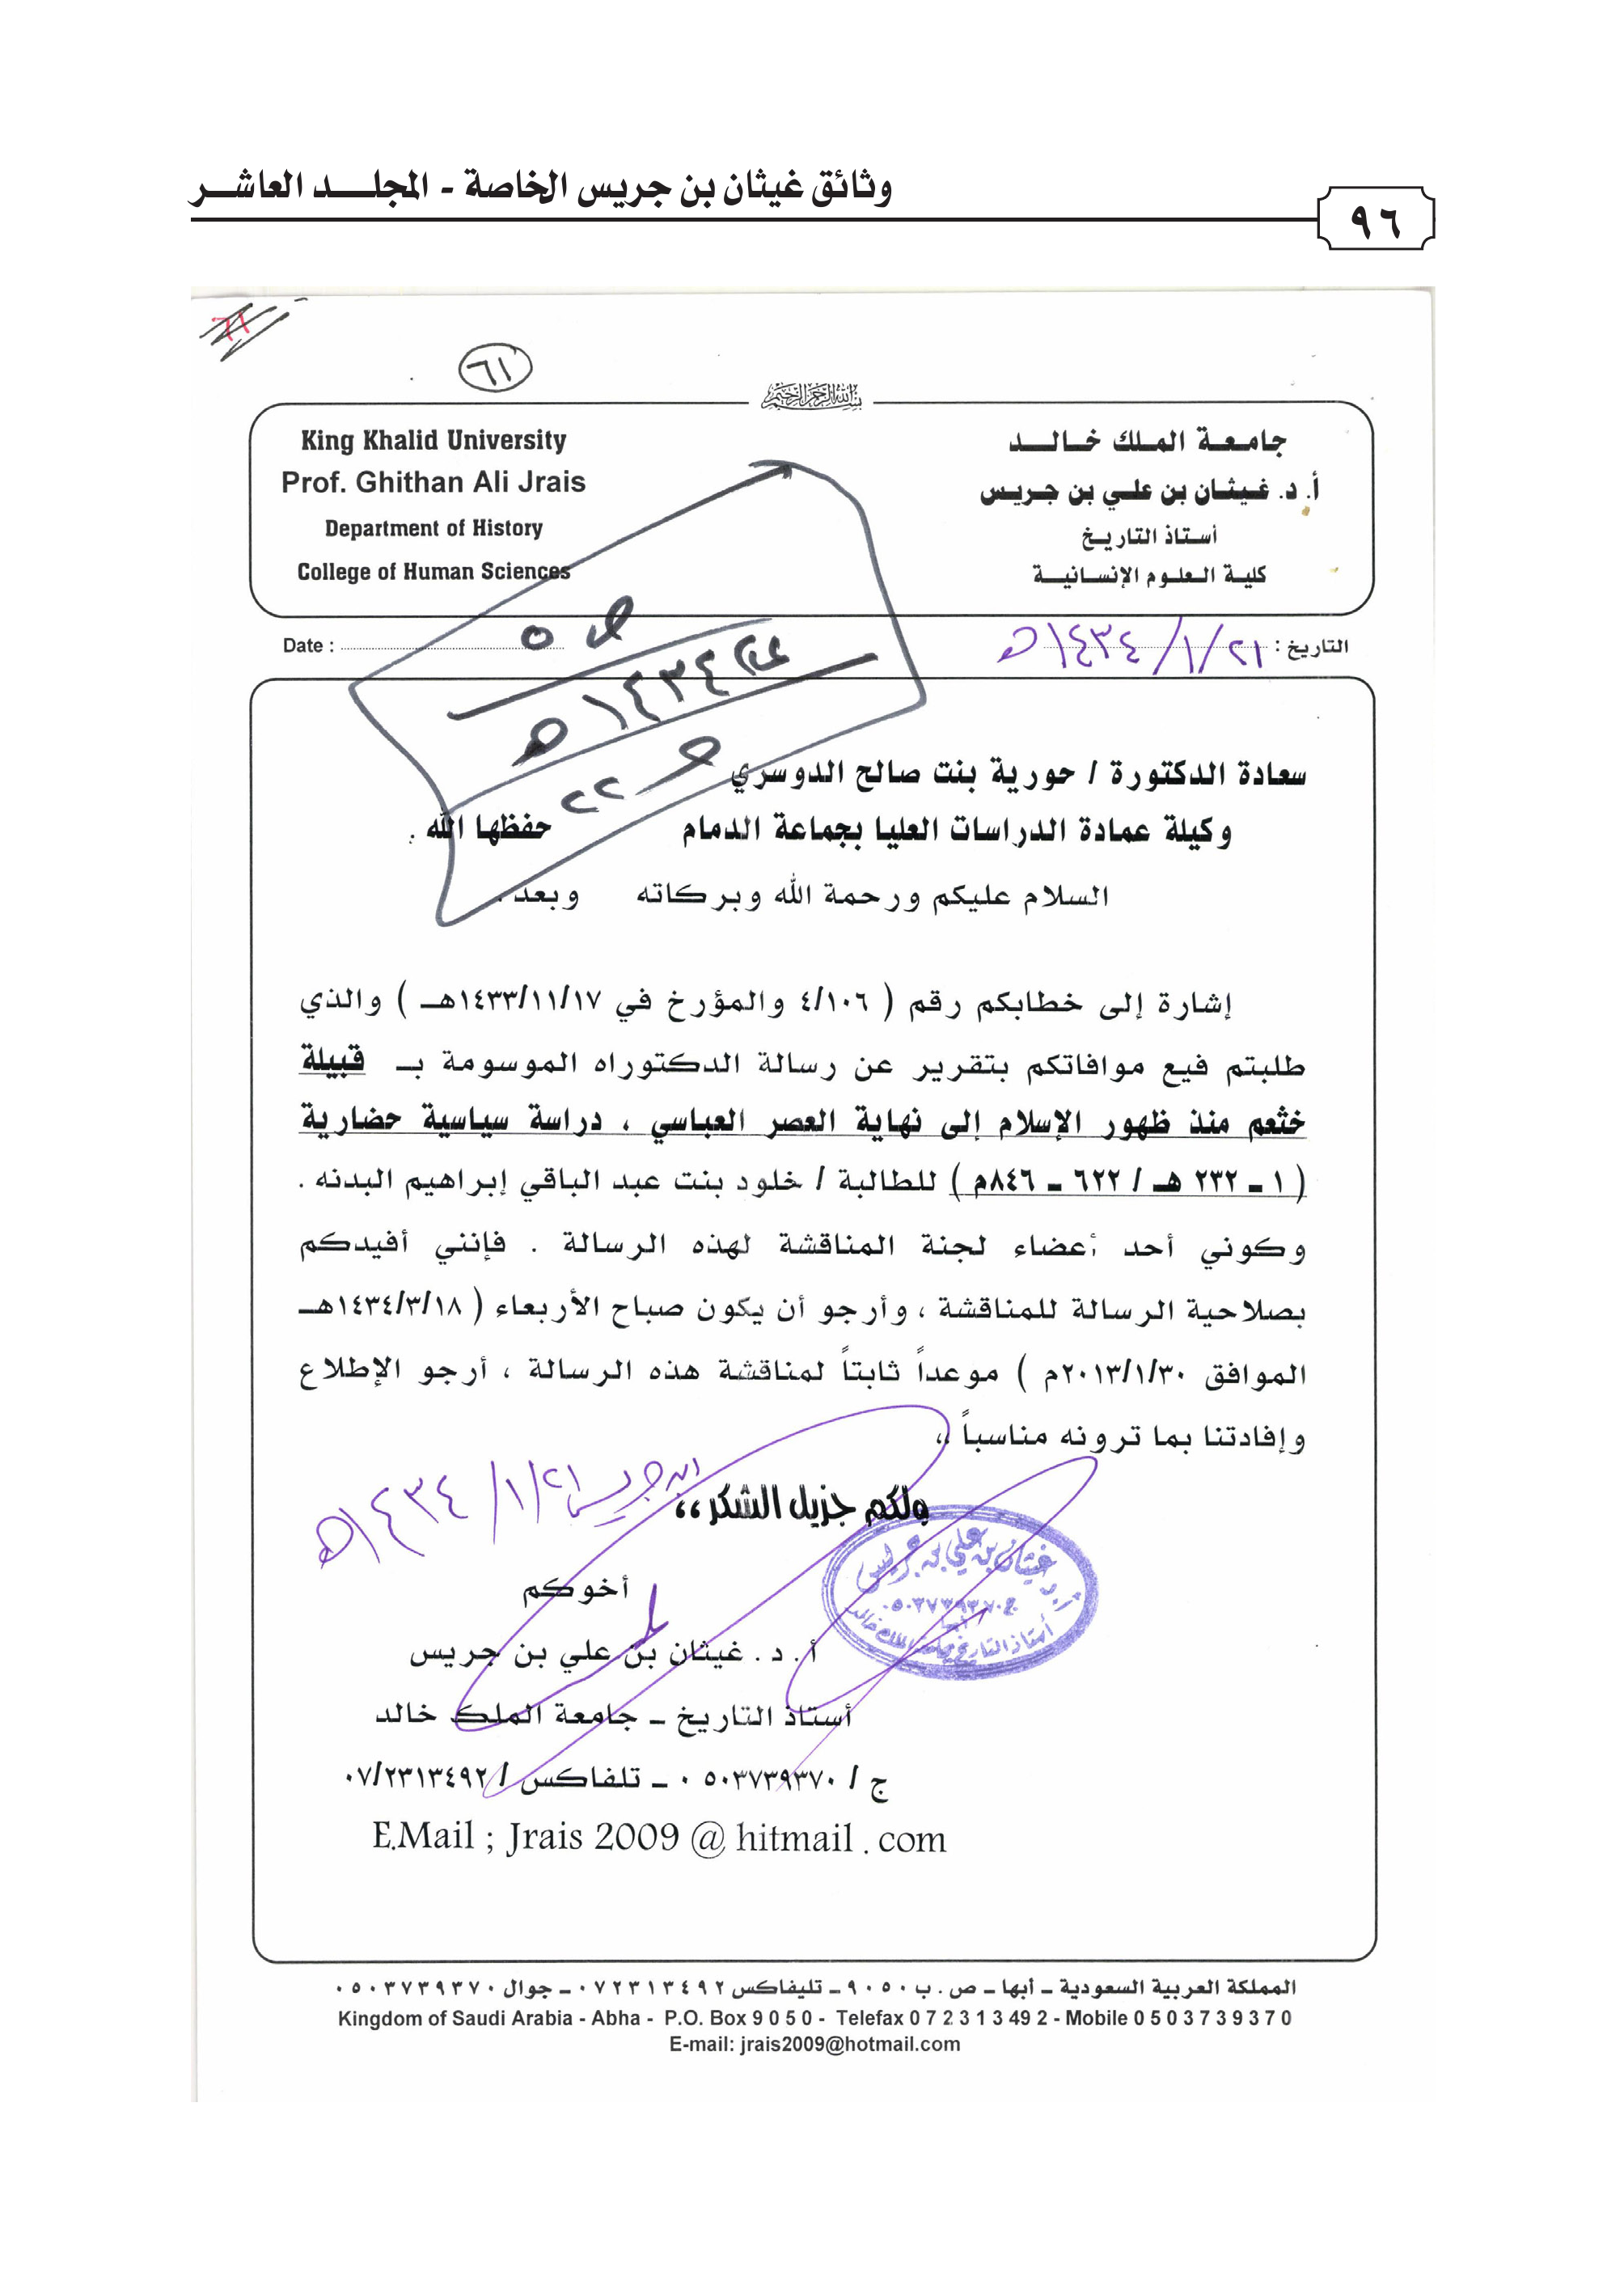 وثائق غيثان بن جريس الخاصة - المجلـــد العاشـــر
٩٦
٦١
٦١
بسم الله الرحمن الرحيم
King Khalid University
Prof. Ghithan Ali Jrais
Department of History
College of Human Sciences
جامعة الملك خالد
أ. د. غيثان بن علي بن جريس
أستاذ التاريخ
كلية العلوم الإنسانية
Date :
التاريخ : ٢١/١/١٤٣٤هـ
١٤٣٤هـ
سعادة الدكتورة / حورية بنت صالح الدوسري
وكيلة عمادة الدراسات العليا بجماعة الدمام حفظها الله .
السلام عليكم ورحمة الله وبركاته وبعد .
إشارة إلى خطابكم رقم ( ٤/١٠٦ والمؤرخ في ١٤٣٣/١١/١٧هـ ) والذي
طلبتم فيع موافاتكم بتقرير عن رسالة الدكتوراه الموسومة بـ قبيلة
خثعم منذ ظهور الإسلام إلى نهاية العصر العباسي ، دراسة سياسية حضارية
( ١ – ٢٣٢ هـ / ٦٢٢ – ٨٤٦م ) للطالبة / خلود بنت عبد الباقي إبراهيم البدنه .
وكوني أحد أعضاء لجنة المناقشة لهذه الرسالة . فإنني أفيدكم
بصلاحية الرسالة للمناقشة ، وأرجو أن يكون صباح الأربعاء ( ١٤٣٤/٣/١٨هـ
الموافق ٢٠١٣/١/٣٠م ) موعداً ثابتاً لمناقشة هذه الرسالة ، أرجو الإطلاع
وإفادتنا بما ترونه مناسباً ،،
ولكم جزيل الشكر ،،
ابن جريس ٢١/١/١٤٣٤هـ
أ. د غيثان بن علي بن جريس
ج ٠٥٠٣٧٣٩٣٧٠
أبها
أستاذ التاريخ بجامعة الملك خالد
أخوكم
أ. د . غيثان بن علي بن جريس
أستاذ التاريخ – جامعة الملك خالد
ج / ٥٠٣٧٣٩٣٧٠ ٠ – تلفاكس / ٠٧/٢٣١٣٤٩٢
E.Mail ; Jrais 2009 @ hitmail . com
المملكة العربية السعودية – أبها – ص . ب ٩٠٥٠ – تليفاكس ٠٧٢٣١٣٤٩٢ – جوال ٠٥٠٣٧٣٩٣٧٠
Kingdom of Saudi Arabia - Abha - P.O. Box 9 0 5 0 - Telefax 0 7 2 3 1 3 49 2 - Mobile 0 5 0 3 7 3 9 3 7 0
E-mail: jrais2009@hotmail.com